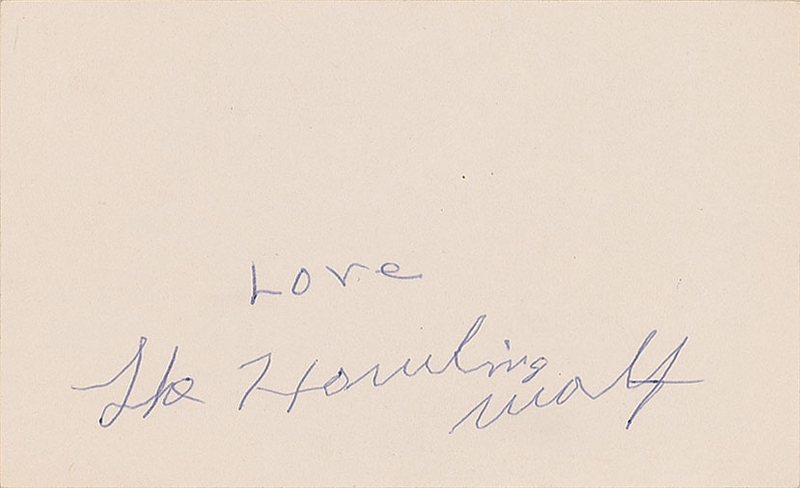 Love
The Howling
Wolf